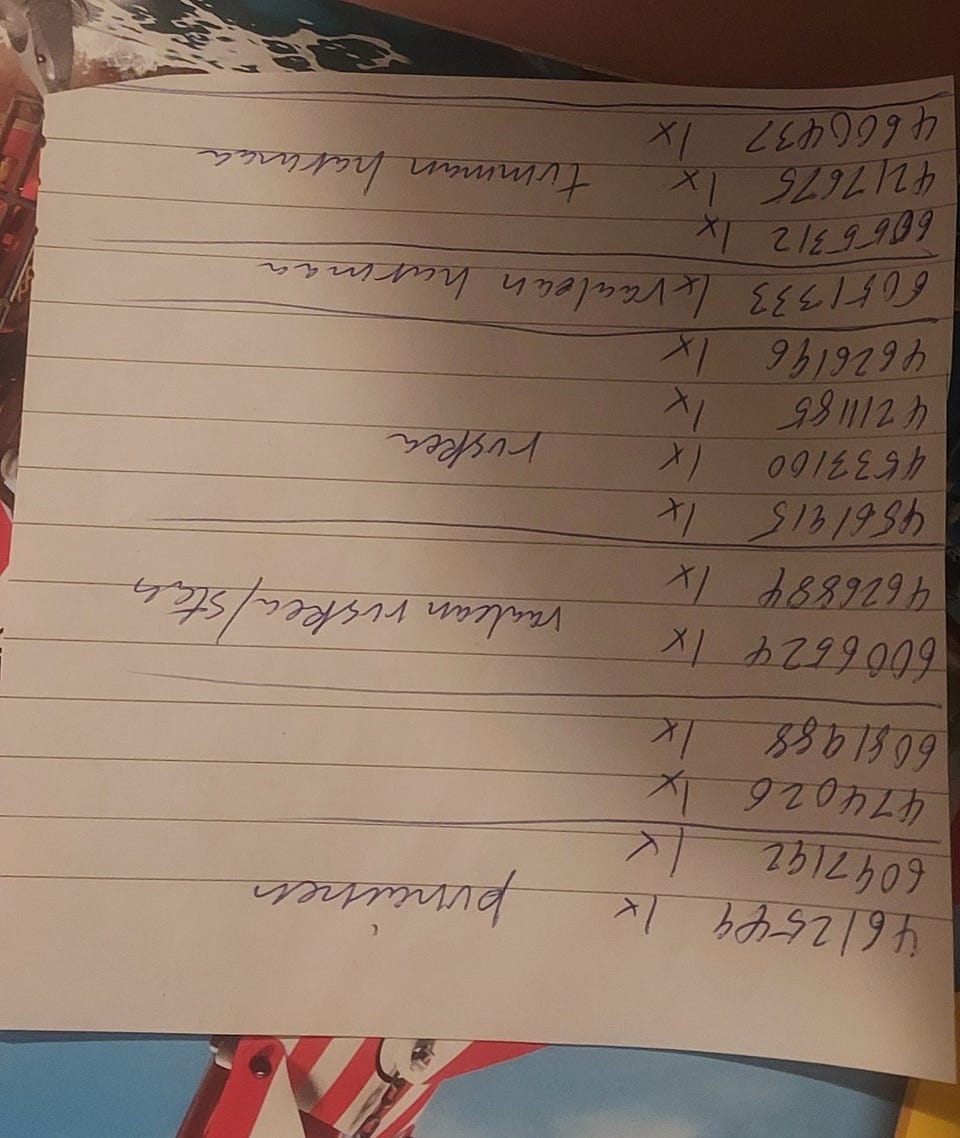 4612549 1x punainen
6047192 1x
474026 1x
6081988 1x
6006524 1x
vaalean ruskea/sten
4626884 1x
4561915 1x
4533100 1x ruskea
4211185 1x
4626196 1x
6051333 1x vaalean harmaa
6066312 1x
4217675 1x tumman harmaa
4600437 1x